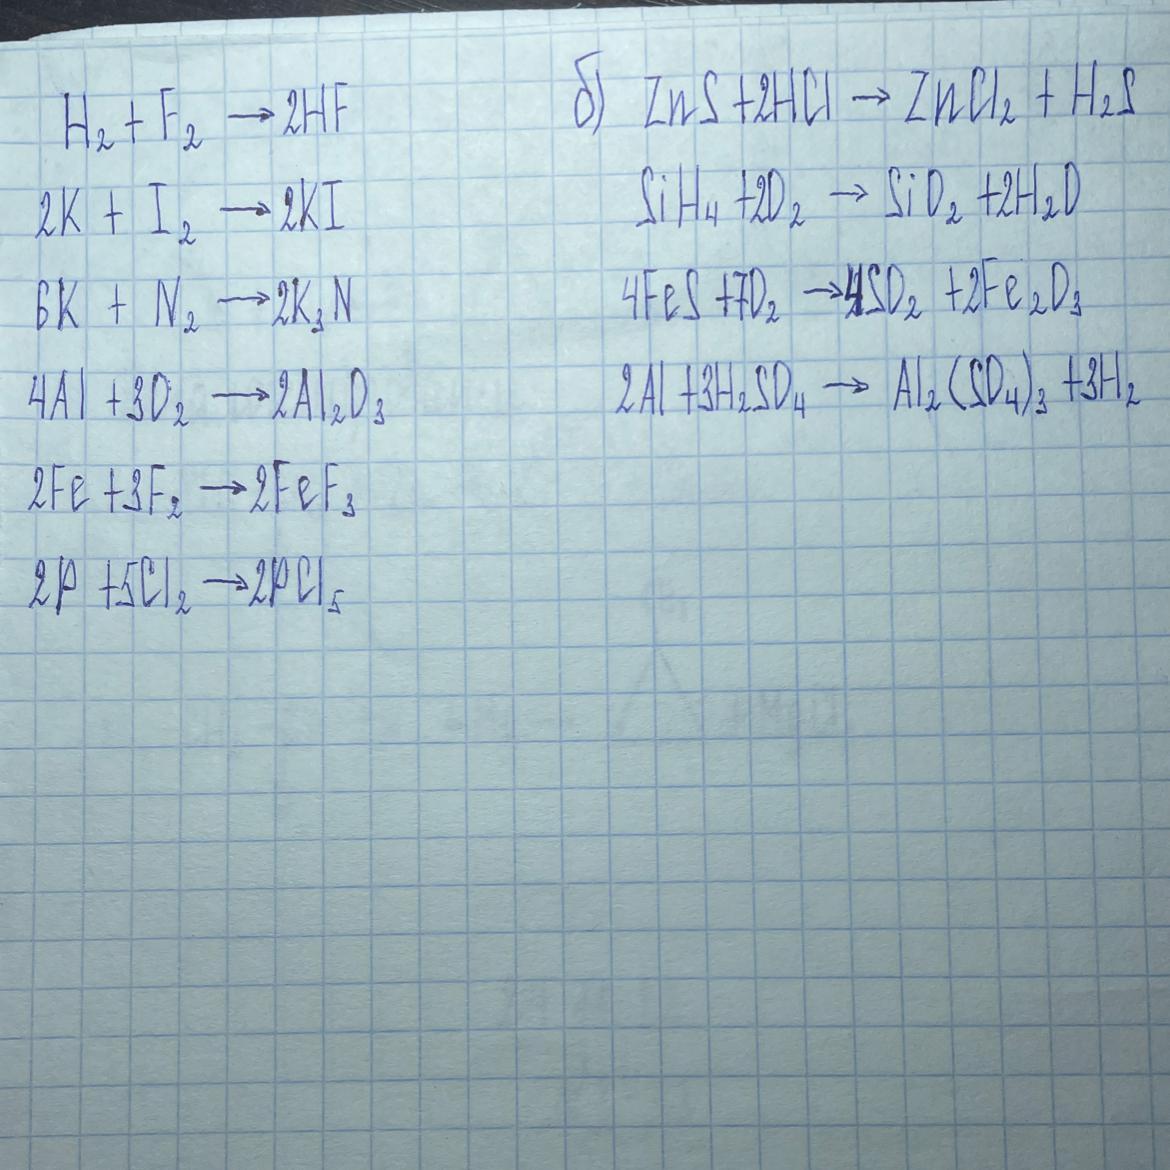 H₂ + F₂ → 2HF
2K + I₂ → 2KI
6K + N₂ → 2K₃N
4Al + 3O₂ → 2Al₂O₃
2Fe + 3F₂ → 2FeF₃
2P + 5Cl₂ → 2PCl₅
б) ZnS + 2HCl → ZnCl₂ + H₂S
SiH₄ + 2O₂ → SiO₂ + 2H₂O
4FeS + 7O₂ → 4SO₂ + 2Fe₂O₃
2Al + 3H₂SO₄ → Al₂(SO₄)₃ + 3H₂